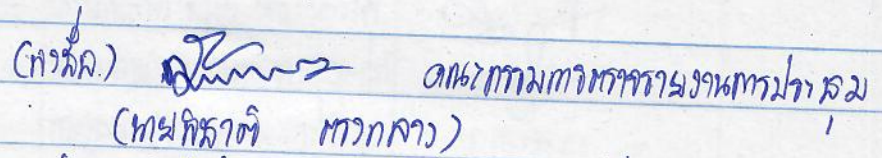 (ลงชื่อ) คณะกรรมการตรวจรายงานการประชุม
(นายพิชาติ ตรงกลาง)